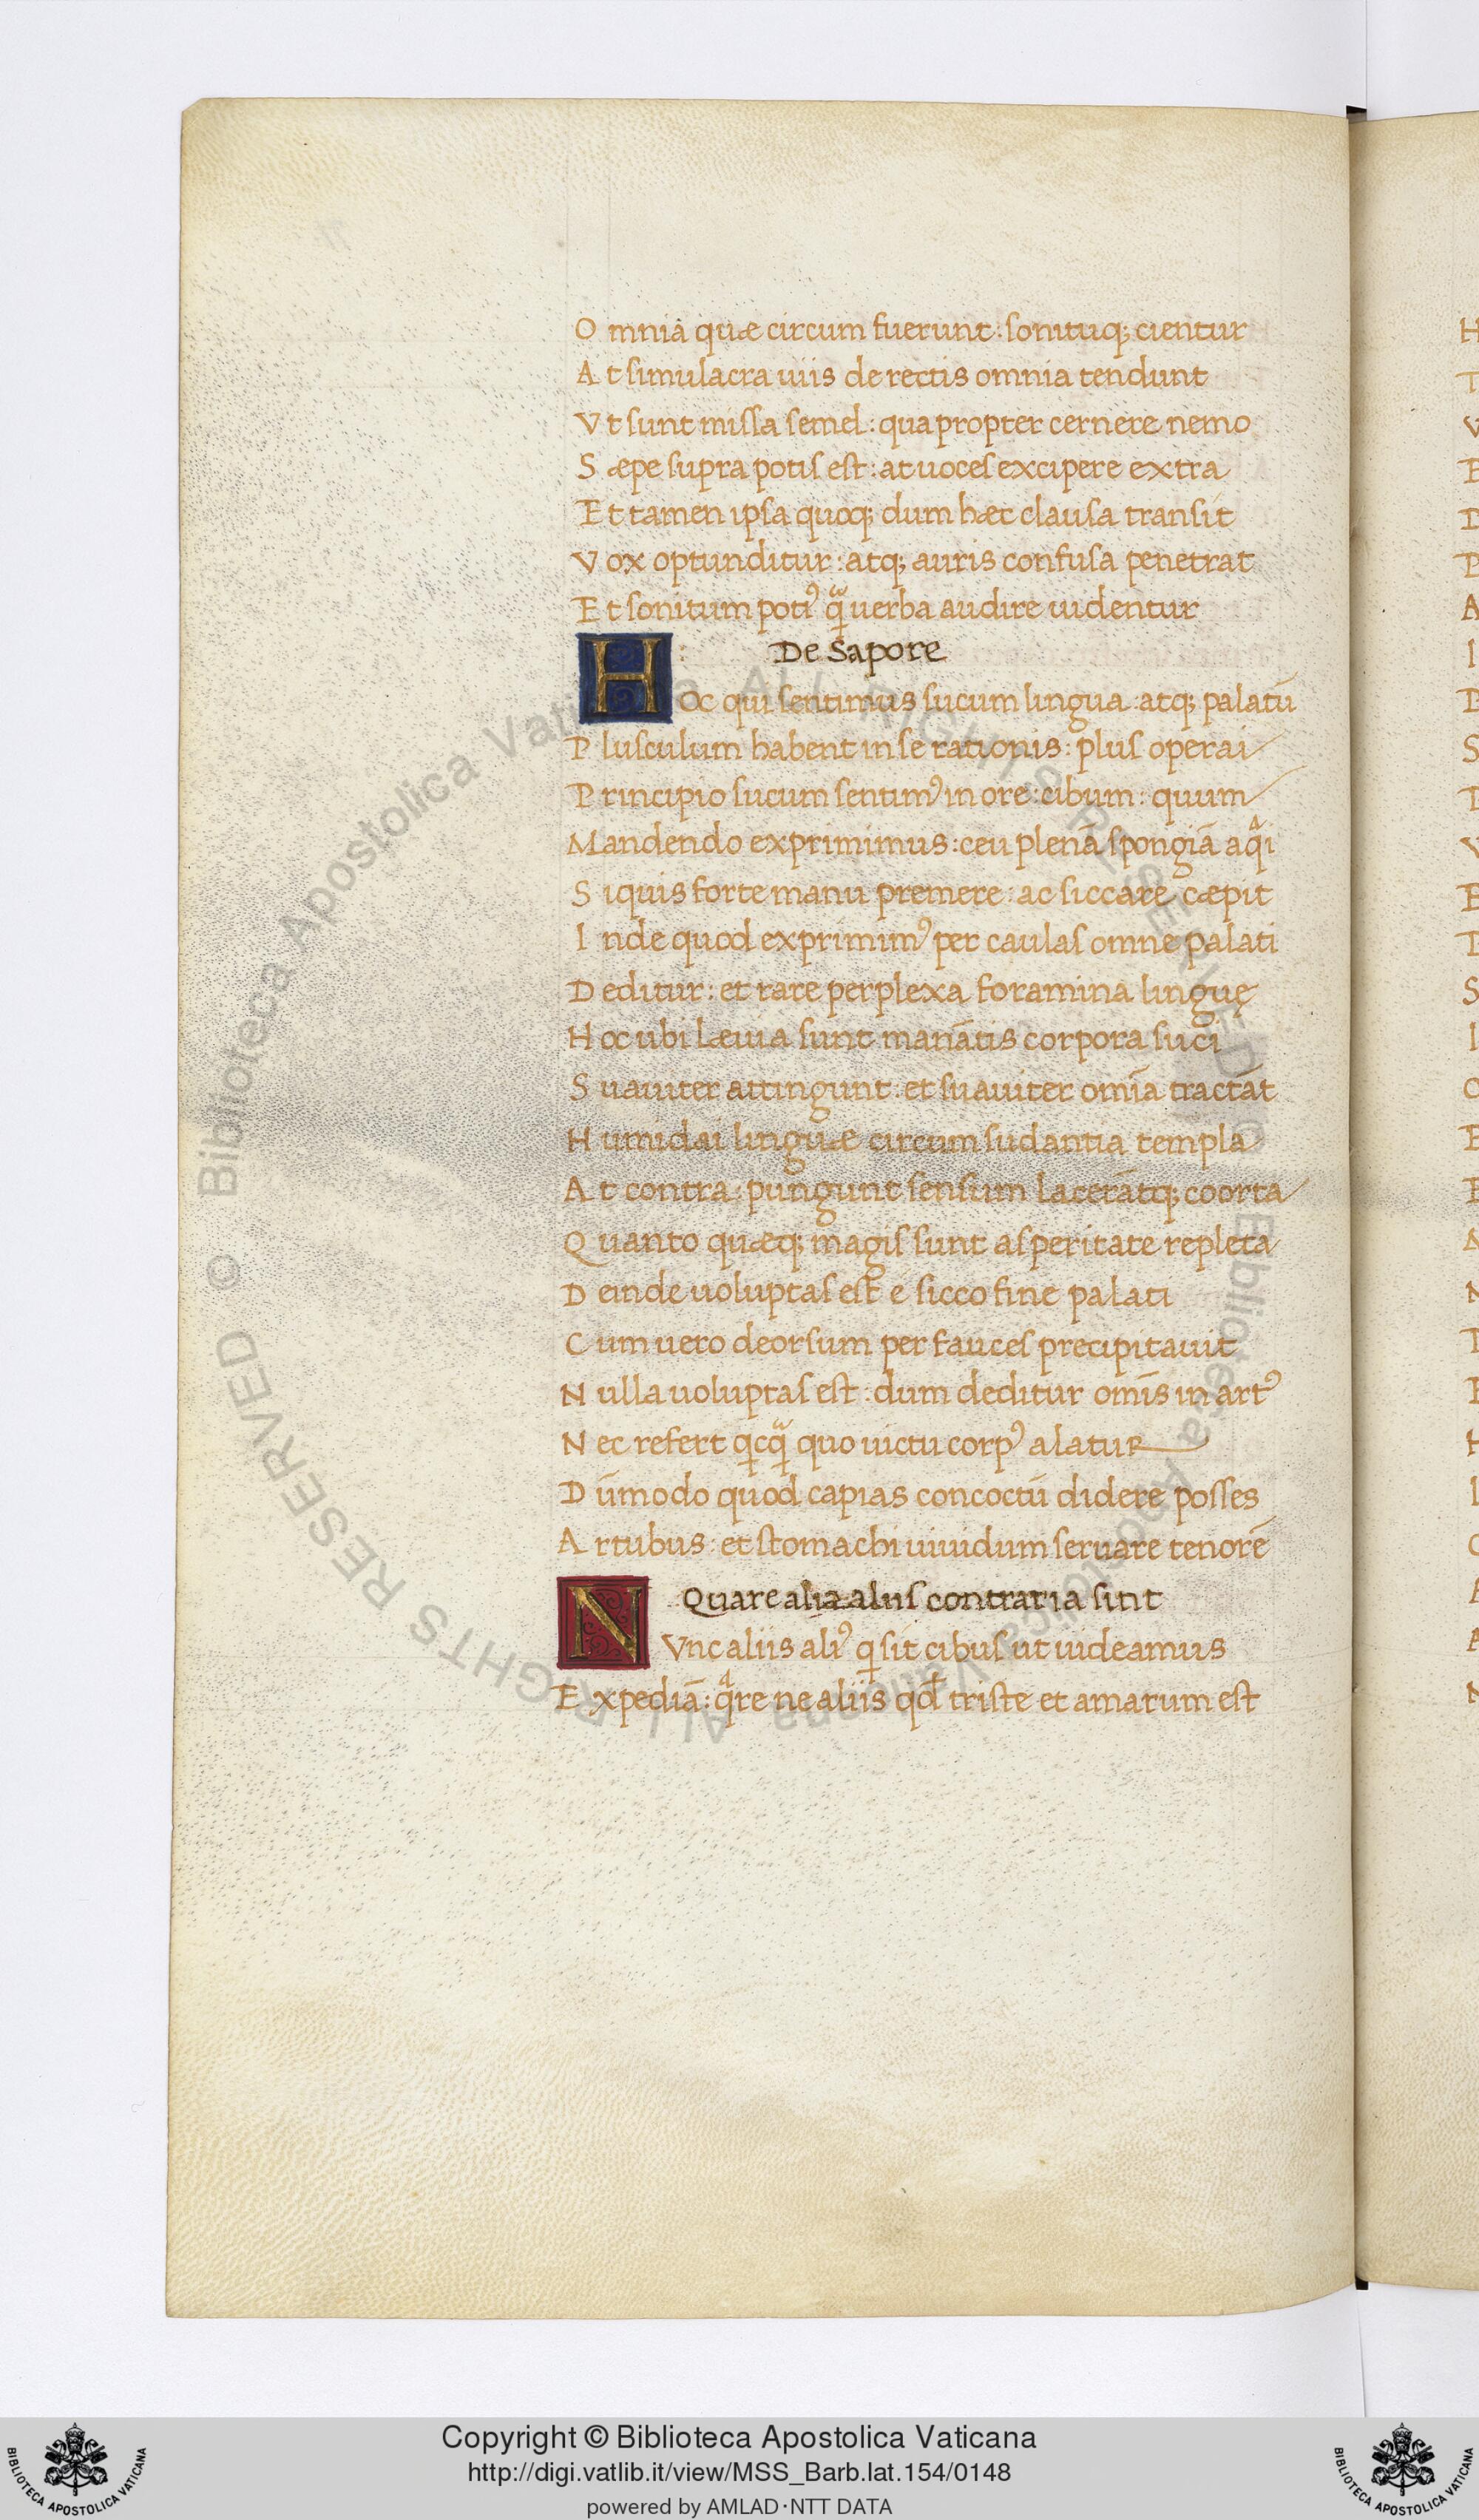 O mnia quæ circum fuerunt: sonituq; cientur
A t simulacra uiis de rectis omnia tendunt
V t sunt missa semel: quapropter cernere nemo
S æpe supra potis est: at uoces excipere extra
E t tamen ipsa quoq; dum hæc clausa transit
V ox optunditur: atq; auris confusa penetrat
E t sonitum poti⁹ qᷓ uerba audire uidentur
De Sapore
H oc qui sentimus sucum lingua: atq; palatū
P lusculum habent in se rationis: plus operai
P rincipio sucum sentim⁹ in ore: cibum: quum
M andendo exprimimus: ceu plenā spongiā aqᷓi
S iquis forte manu premere: ac siccare cæpit
I nde quod exprimim⁹ per caulas omne palati
D editur: et rare perplexa foramina linguę
H oc ubi læuia sunt manātis corpora suci
S uauiter attingunt: et suauiter omīa tractāt
H umidai linguæ circum sudantia templa
A t contra: pungunt sensum lacerātq; coorta
Q uanto quæq; magis sunt asperitate repleta
D einde uoluptas est é sicco fine palati
C um uero deorsum per fauces precipitauit
N ulla uoluptas est: dum deditur omīs in art⁹
N ec refert qͥcqᷓ quo uictu corp⁹ alatur
D ūmodo quod capias concoctū didere posses
A rtubus: et stomachi uiuidum seruare tenorē
Quare alia aliis contraria sint
N Vnc aliis ali⁹ qͥ sit cibus ut uideamus
E xpediā: qᷓre ne aliis qđ triste et amarum est
Copyright © Biblioteca Apostolica Vaticana
http://digi.vatlib.it/view/MSS_Barb.lat.154/0148
powered by AMLAD·NTT DATA
BIBLIOTECA APOSTOLICA VATICANA
BIBLIOTECA APOSTOLICA VATICANA
© Biblioteca Apostolica Vaticana ALL RIGHTS RESERVED
© Biblioteca Apostolica Vaticana ALL RIGHTS RESERVED